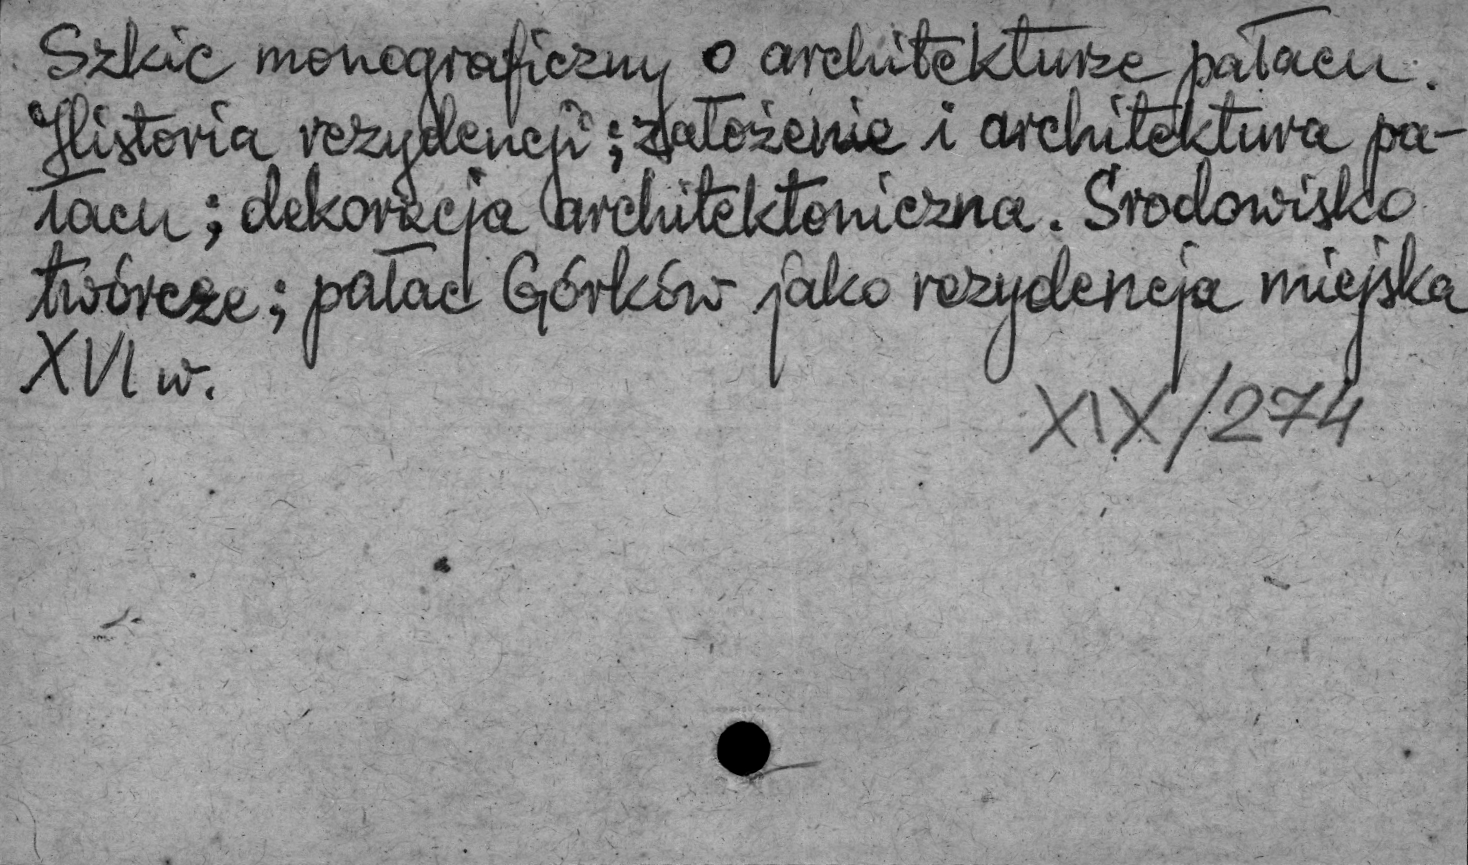 Szkic monograficzny o architekturze pałacu.
Historia rezydencji; założenie i architektura pa-
łacu; dekoracja architektoniczna. Środowisko
twórcze; pałac Górków jako rezydencja miejska
XVI w.
XIX/274